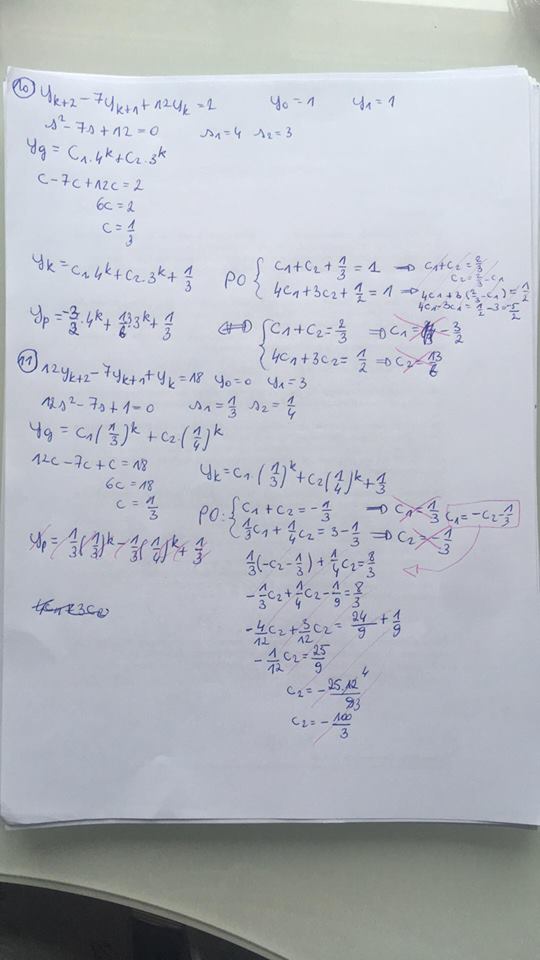 10 y_{k+2} - 7y_{k+1} + 12y_k = 2   y_0 = 1   y_1 = 1
s² - 7s + 12 = 0   s_1 = 4   s_2 = 3
y_g = C_1·4^k + C_2·3^k
C - 7C + 12C = 2
6C = 2
C = 1/3
y_k = C_1·4^k + C_2·3^k + 1/3
PO { C_1 + C_2 + 1/3 = 1 ⇒ C_1 + C_2 = 2/3
C_2 = 2/3 - C_1
4C_1 + 3C_2 + 1/2 = 1 ⇒ 4C_1 + 3(2/3 - C_1) = 1/2
4C_1 - 3C_1 = 1/2 - 3 = -5/2
y_p = -3/2·4^k + 13/6·3^k + 1/3
⇔ { C_1 + C_2 = 2/3 ⇒ C_1 = - 3/2
4C_1 + 3C_2 = 1/2 ⇒ C_2 = 13/6
11 12y_{k+2} - 7y_{k+1} + y_k = 18   y_0 = 0   y_1 = 3
12s² - 7s + 1 = 0   s_1 = 1/3   s_2 = 1/4
y_g = C_1(1/3)^k + C_2·(1/4)^k
12C - 7C + C = 18
6C = 18
C = 1/3
y_k = C_1·(1/3)^k + C_2(1/4)^k + 1/3
PO: { C_1 + C_2 = -1/3 ⇒ C_1 = 1/3   C_1 = -C_2 - 1/3
1/3C_1 + 1/4C_2 = 3 - 1/3 ⇒ C_2 = -1/3
y_p = 1/3(1/3)^k - 1/3(1/4)^k + 1/3
1/3(-C_2 - 1/3) + 1/4C_2 = 8/3
-1/3C_2 + 1/4C_2 - 1/9 = 8/3
-4/12C_2 + 3/12C_2 = 24/9 + 1/9
-1/12C_2 = 25/9
C_2 = -25·12 4/9 3
C_2 = -100/3